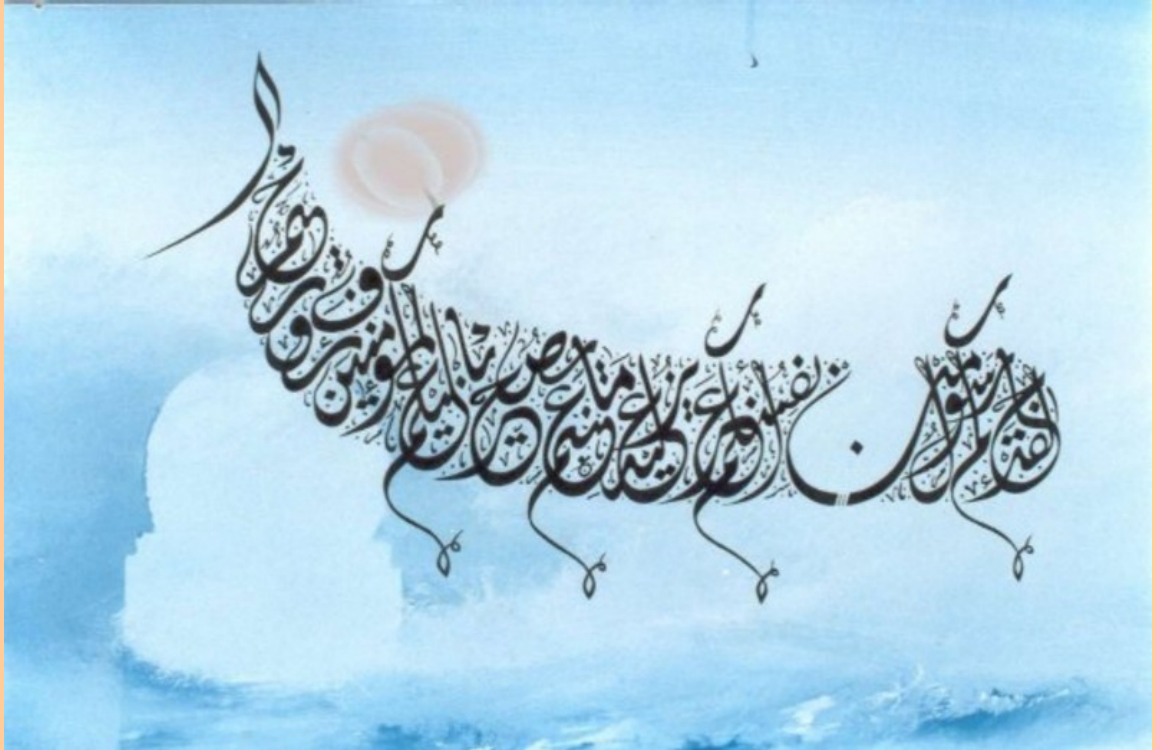 لقد جاءكم رسول من أنفسكم عزيز عليه ما عنتم حريص عليكم بالمؤمنين رءوف رحيم